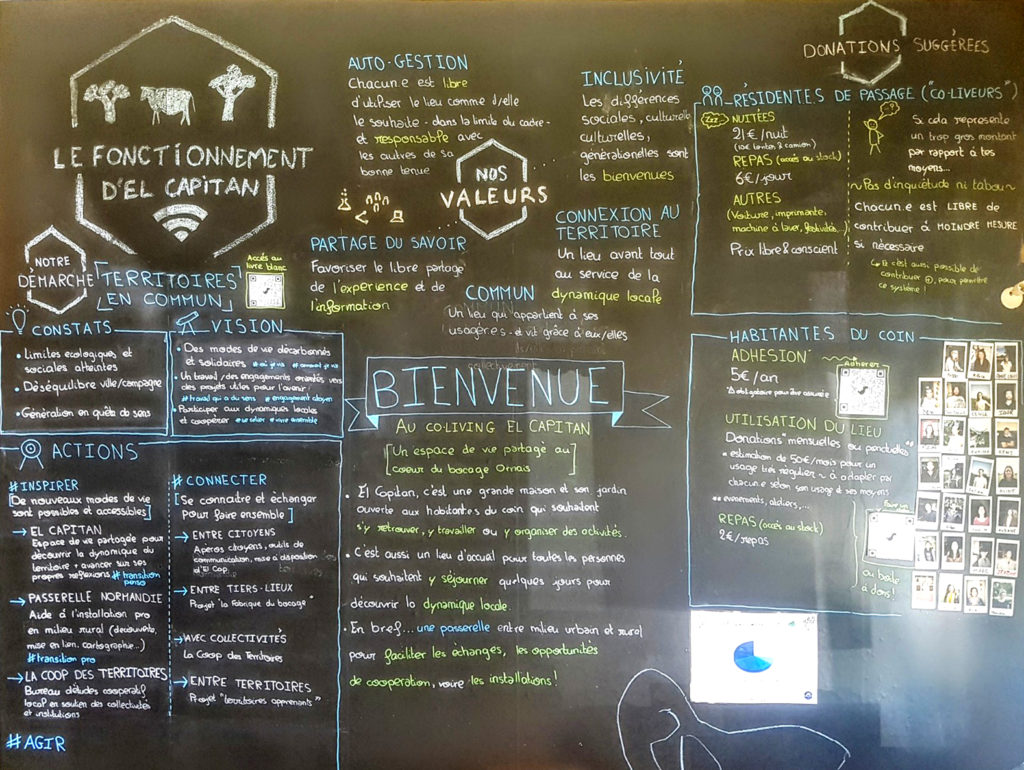 LE FONCTIONNEMENT
D'EL CAPITAN
NOTRE
DÉMARCHE
TERRITOIRES
EN COMMUN
Accès au
livre blanc
CONSTATS
• Limites écologiques et
sociales atteintes
• Déséquilibre ville/campagne
• Génération en quête de sens
VISION
• Des modes de vie décarbonés
et solidaires
• Un travail/des engagements orientés vers
des projets utiles pour l'avenir
#travail qui a du sens #engagement citoyen
• Participer aux dynamiques locales
et coopérer #vivre ensemble
ACTIONS
#INSPIRER
[De nouveaux modes de vie
sont possibles et accessibles]
→ EL CAPITAN
Espace de vie partagée pour
découvrir la dynamique du
territoire + avancer sur ses
propres réflexions #transition
perso
→ PASSERELLE NORMANDIE
Aide à l'installation pro
en milieu rural (découverte,
mise en lien, cartographie...)
#transition pro
→ LA COOP DES TERRITOIRES
Bureau d'études coopératif
local en soutien des collectivités
et institutions
#AGIR
#CONNECTER
[Se connaître et échanger
pour faire ensemble]
→ ENTRE CITOYENS
Apéros citoyens, outils de
communication, mise à disposition
d'El Cap.
→ ENTRE TIERS-LIEUX
Projet "la Fabrique du bocage"
→ AVEC COLLECTIVITÉS
La Coop des Territoires
→ ENTRE TERRITOIRES
Projet "territoires apprenants"
NOS
VALEURS
AUTO-GESTION
Chacun.e est libre
d'utiliser le lieu comme il/elle
le souhaite - dans la limite du cadre -
et responsable avec
les autres de sa
bonne tenue
INCLUSIVITÉ
Les différences
sociales, culturelle
culturelles,
générationelles sont
les bienvenues
PARTAGE DU SAVOIR
Favoriser le libre partage
de l'expérience et de
l'information
CONNEXION AU
TERRITOIRE
Un lieu avant tout
au service de la
dynamique locale
COMMUN
Un lieu qui appartient à ses
usagères - et vit grâce à eux/elles
collectivement
BIENVENUE
AU CO-LIVING EL CAPITAN
[Un espace de vie partagé au
coeur du bocage Ornais]
• El Capitan, c'est une grande maison et son jardin
ouverte aux habitantes du coin qui souhaitent
s'y retrouver, y travailler ou y organiser des activités.
• C'est aussi un lieu d'accueil pour toutes les personnes
qui souhaitent y séjourner quelques jours pour
découvrir la dynamique locale
• En bref... une passerelle entre milieu urbain et rural
pour faciliter les échanges, les opportunités
de coopération, voire les installations!
DONATIONS SUGGÉRÉES
RÉSIDENTES DE PASSAGE ("CO-LIVEURS")
Zzz
NUITÉES
21€/nuit
REPAS (accès au stock)
6€/jour
AUTRES
(Voiture, imprimante,
machine à laver, festivités...)
Prix libre & conscient
Si cela représente
un trop gros montant
par rapport à tes
moyens...
~ Pas d'inquiétude ni tabou ~
Chacun.e est LIBRE de
contribuer à MOINDRE MESURE
si nécessaire
↳ Et c'est aussi possible de
contribuer ⊕, pour permettre
ce système!
HABITANTES DU COIN
ADHESION
5€/an
Adhérer
UTILISATION DU LIEU
Donations* mensuelles ou ponctuelles**
* estimation de 50€/mois pour un
usage très régulier ~ à adapter par
chacun.e selon son usage et ses moyens
** évenements, ateliers,...
REPAS (accès au stock)
2€/repas
Faire un
ou boîte
à dons!